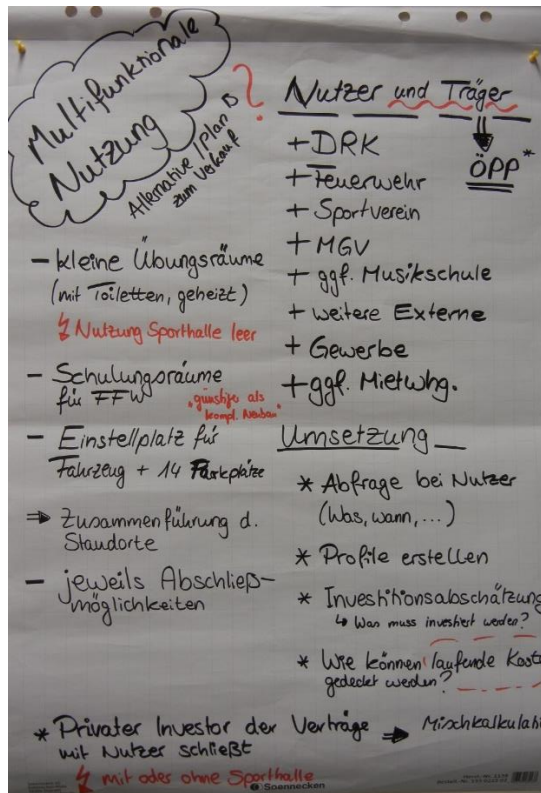 Multifunktionale
Nutzung
?
Alternative / Plan B
zum Verkauf
- kleine Übungsräume
(mit Toiletten, geheizt)
Nutzung Sporthalle leer
- Schulungsräume
für FFW
"günstiger als
kompl. Neubau"
- Einstellplatz für
Fahrzeug + 14 Parkplätze
⇒ Zusammenführung d.
Standorte
- jeweils Abschließ-
möglichkeiten
Nutzer und Träger
ÖPP *
+ DRK
+ Feuerwehr
+ Sportverein
+ MGV
+ ggf. Musikschule
+ weitere Externe
+ Gewerbe
+ ggf. Mietwhg.
Umsetzung
* Abfrage bei Nutzer
(Was, wann, ...)
* Profile erstellen
* Investitionsabschätzung
↳ Was muss investiert werden?
* Wie können laufende Kost
gedeckt werden?
* Privater Investor der Verträge ⇒ Mischkalkulati
mit Nutzer schließt
mit oder ohne Sporthalle
Soennecken